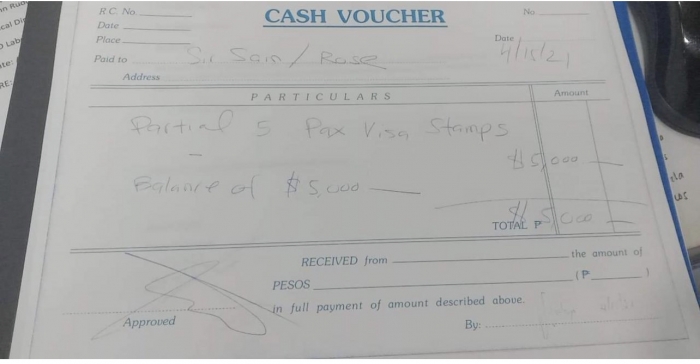 R.C. No.
CASH VOUCHER
No.
Date
Place
Date 4/15/21
Paid to Sir Sain / Rose
Address
PARTICULARS Amount
Partial 5 Pax Visa Stamps
$5,000
Balance of $5,000
TOTAL P $5,000
RECEIVED from the amount of
PESOS (P )
in full payment of amount described above.
Approved By: